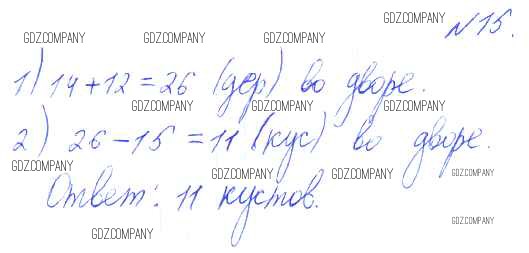 GDZ.COMPANY
№15.
GDZ.COMPANY GDZ.COMPANY GDZ.COMPANY
1) 14 + 12 = 26 (дер) во дворе.
GDZ.COMPANY GDZ.COMPANY GDZ.COMPANY
2) 26 - 15 = 11 (кус) во дворе.
GDZ.COMPANY GDZ.COMPANY GDZ.COMPANY GDZ.COMPANY
Ответ: 11 кустов.
GDZ.COMPANY GDZ.COMPANY